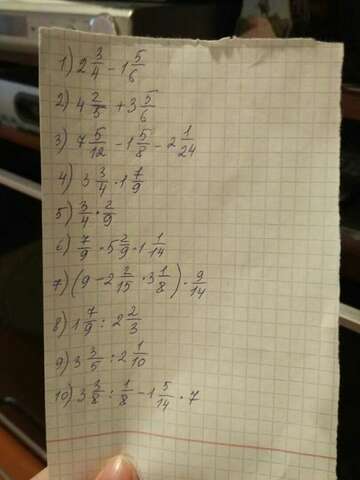 1) 2 3/4 - 1 5/6
2) 4 2/5 + 3 5/6
3) 7 5/12 - 1 5/8 - 2 1/24
4) 3 3/4 · 1 7/9
5) 3/4 · 2/9
6) 7/9 · 5 2/9 · 1 1/14
7) (9 - 2 2/15 · 3 1/8) · 9/14
8) 1 7/9 : 2 2/3
9) 3 3/5 : 2 1/10
10) 3 3/8 : 1/8 - 1 5/14 · 7